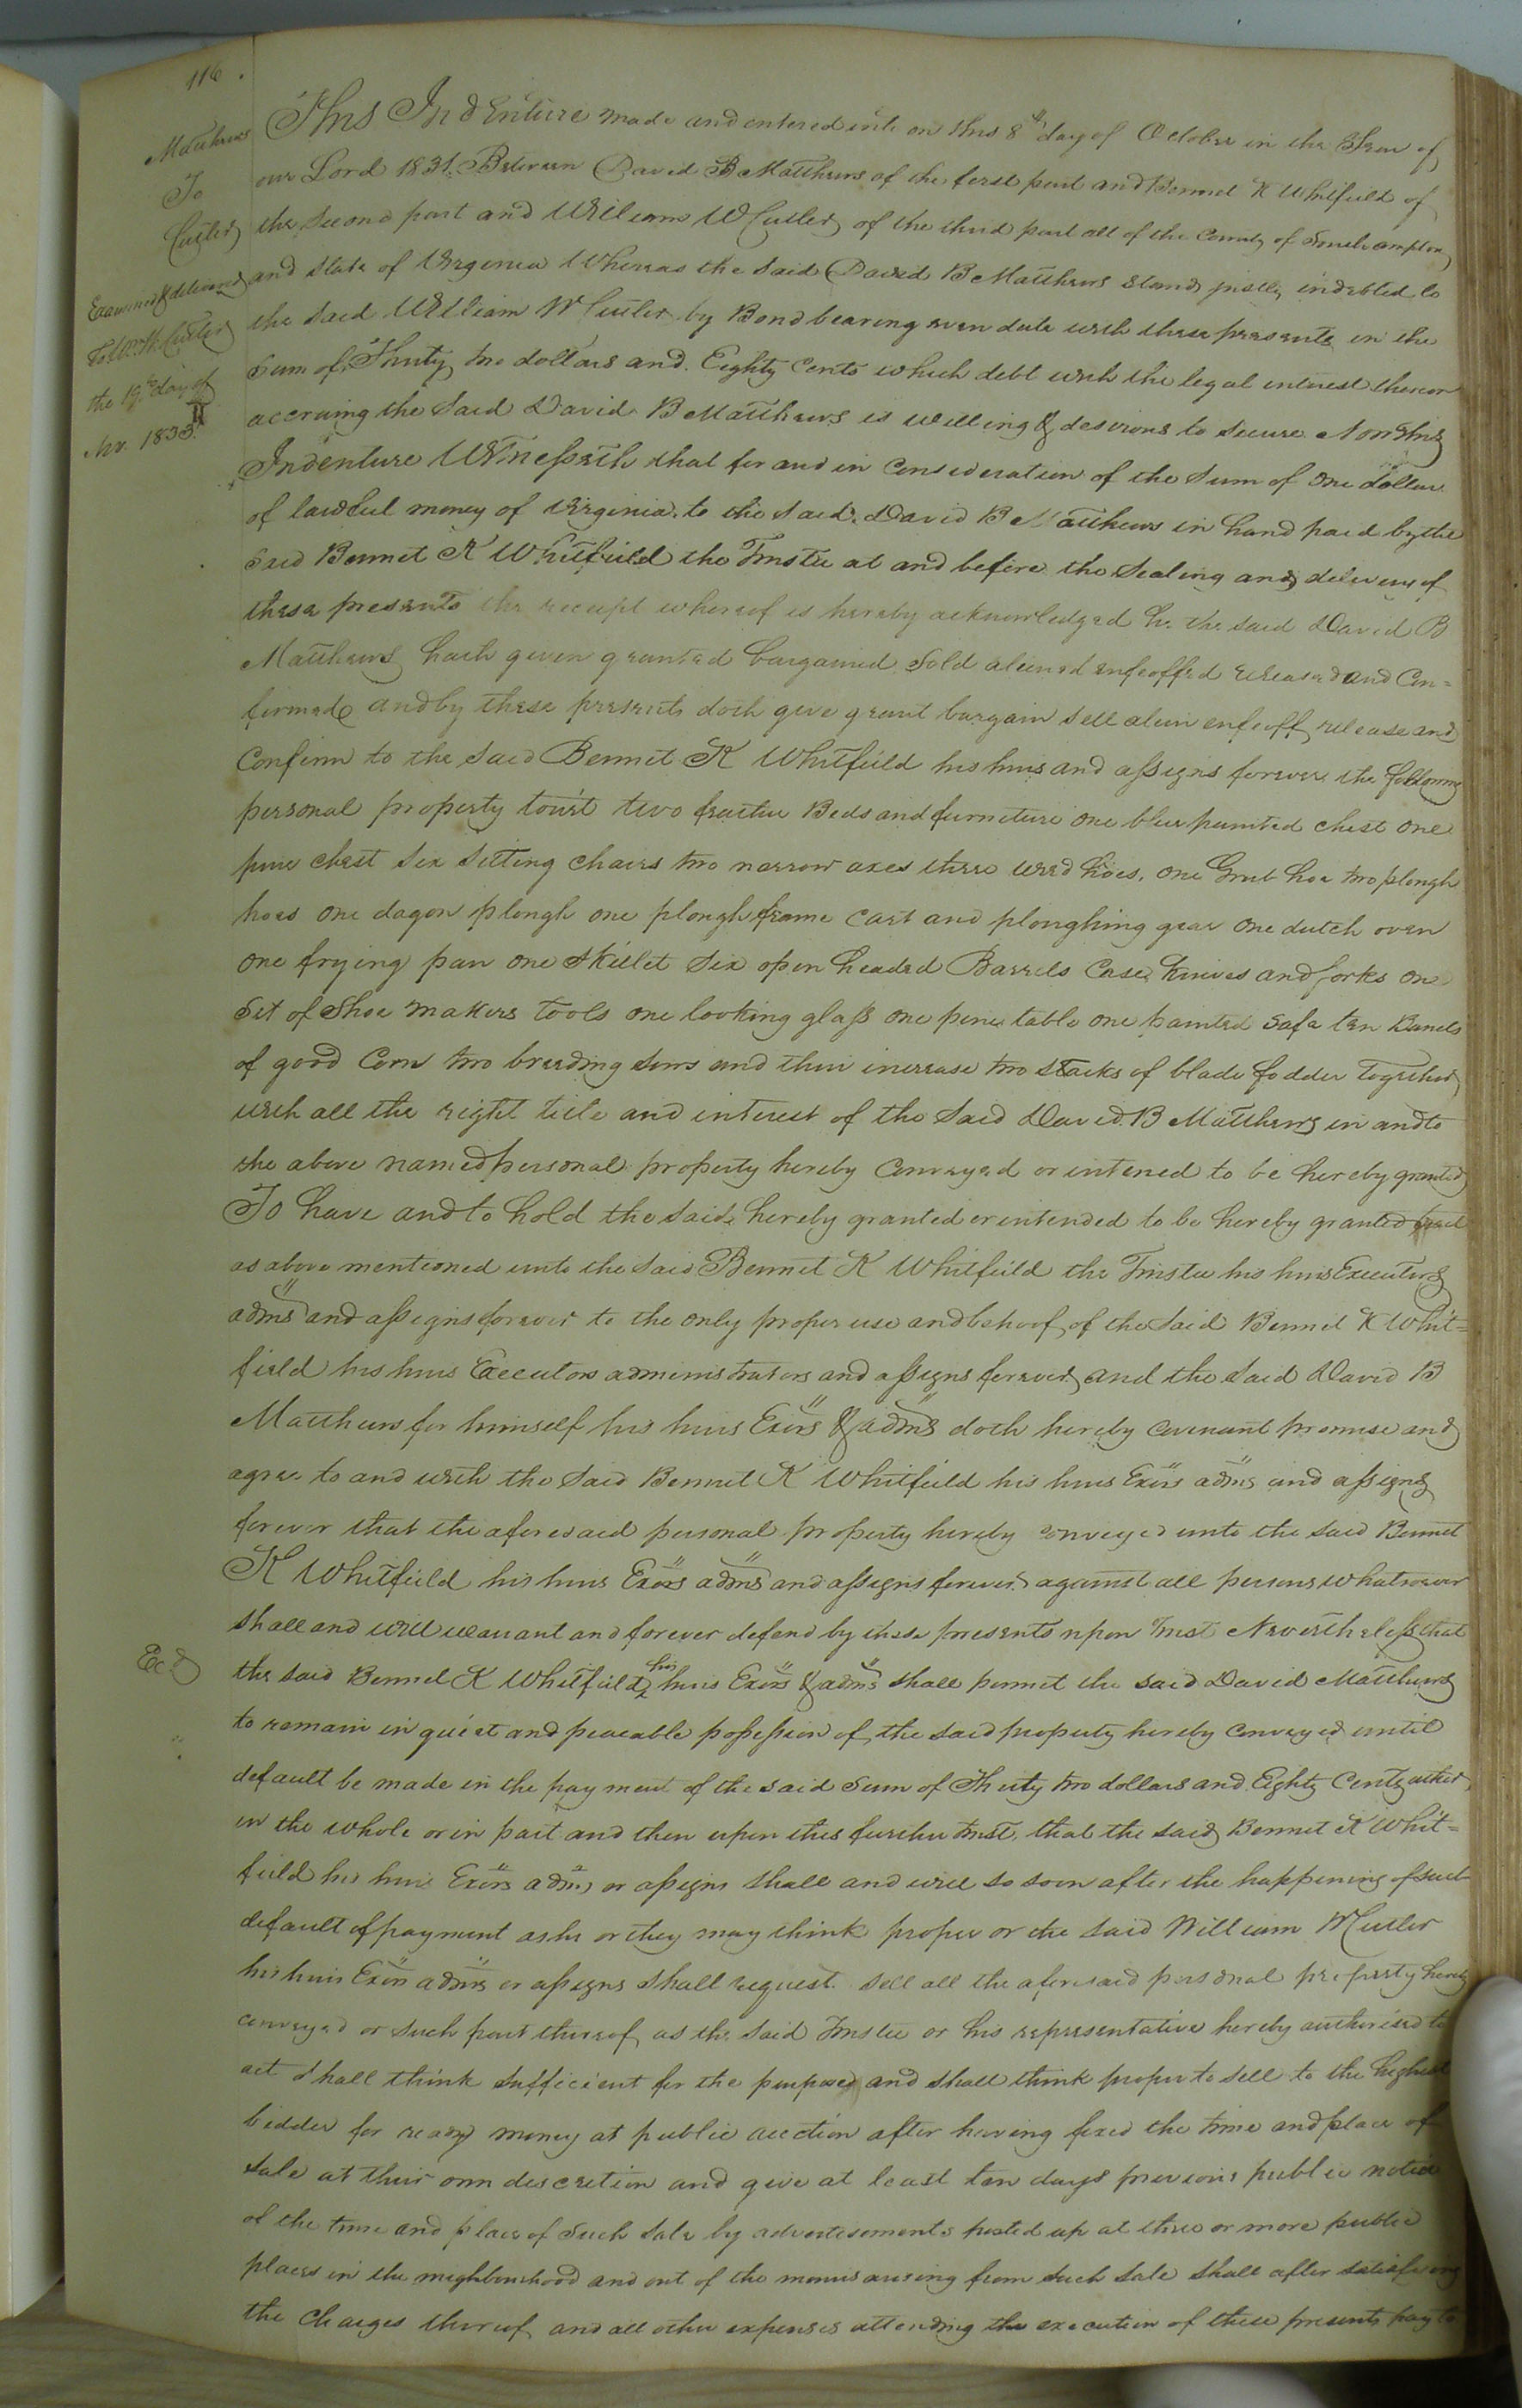 116.
Matthews
To
Cutler
Examined & delivered
To Wm W. Cutler
the 19th day of
Nov. 1833
This Indenture made and entered into on this 8th day of October in the Year of
our Lord 1831. Between David B Matthews of the first part and Bennet K Whitfield of
the second part and William W Cutler of the third part all of the County of Southampton
and State of Virginia Whereas the said David B Matthews stands justly indebted to
the said William W Cutler by Bond bearing even date with these presents in the
Sum of Thirty two dollars and Eighty Cents which debt with the legal interest thereon
accruing the said David B Matthews is willing & desirous to secure Now This
Indenture Witnesseth that for and in Consideration of the Sum of One dollar
of lawful money of Virginia to the said David B Matthews in hand paid by the
said Bennet K Whitfield the Trustee at and before the Sealing and delivery of
these presents the receipt whereof is hereby acknowledged he the said David B
Matthews hath given granted bargained Sold aliened enfeoffed released and Con=
firmed and by these presents doth give grant bargain sell alien enfeoff release and
Confirm to the said Bennet K Whitfield his heirs and assigns forever the following
personal property towit two feather Beds and furniture one blue painted chest one
pine chest six sitting chairs two narrow axes three weed hoes, one Grub hoe two plough
hoes one dagon plough one plough frame cart and ploughing gear one dutch oven
one frying pan one skillet six open headed Barrels Case knives and forks one
Set of Shoe makers tools one looking glass one pine table one painted safe ten Barrels
of good Corn two breeding sows and their increase two stacks of blade fodder together
with all the right title and interest of the said David B Matthews in and to
the above named personal property hereby Conveyed or intened to be hereby granted
To have and to hold the said hereby granted or intended to be hereby granted
as above mentioned unto the said Bennet K Whitfield the Trustee his heirs Executors
adms and assigns forever to the only proper use and behoof of the said Bennet K Whit=
field his heirs Executors administrators and assigns forever and the said David B
Matthews for himself his heirs Exors & adms doth hereby Covenant promise and
agree to and with the said Bennet K Whitfield his heirs Exors adms and assigns
forever that the aforesaid personal property hereby conveyed unto the said Bennet
K Whitfield his heirs Exors adms and assigns forever against all persons whatsoever
shall and will warrant and forever defend by these presents upon Trust Nevertheless that
Ecd
the said Bennet K Whitfield his heirs Exors & adms shall permit the said David Matthews
to remain in quiet and peaceable possession of the said property hereby Conveyed until
default be made in the payment of the said Sum of Thirty two dollars and Eighty Cents either
in the whole or in part and then upon this further trust, that the said Bennet K Whit=
field his heirs Exors adms or assigns shall and will so soon after the happening of such
default of payment as he or they may think proper or the said William W Cutler
his heirs Exors adms or assigns shall request sell all the aforesaid personal property hereby
conveyed or such part thereof as the said Trustee or his representative hereby authorised to
act shall think sufficient for the purpose and shall think proper to sell to the highest
bidder for ready money at public auction after having fixed the time and place of
sale at their own descretion and give at least ten days previous public notice
of the time and place of such sale by advertisements posted up at three or more public
places in the neighbourhood and out of the monies arising from such sale shall after satisfying
the charges thereof and all other expenses attending the execution of these presents pay to